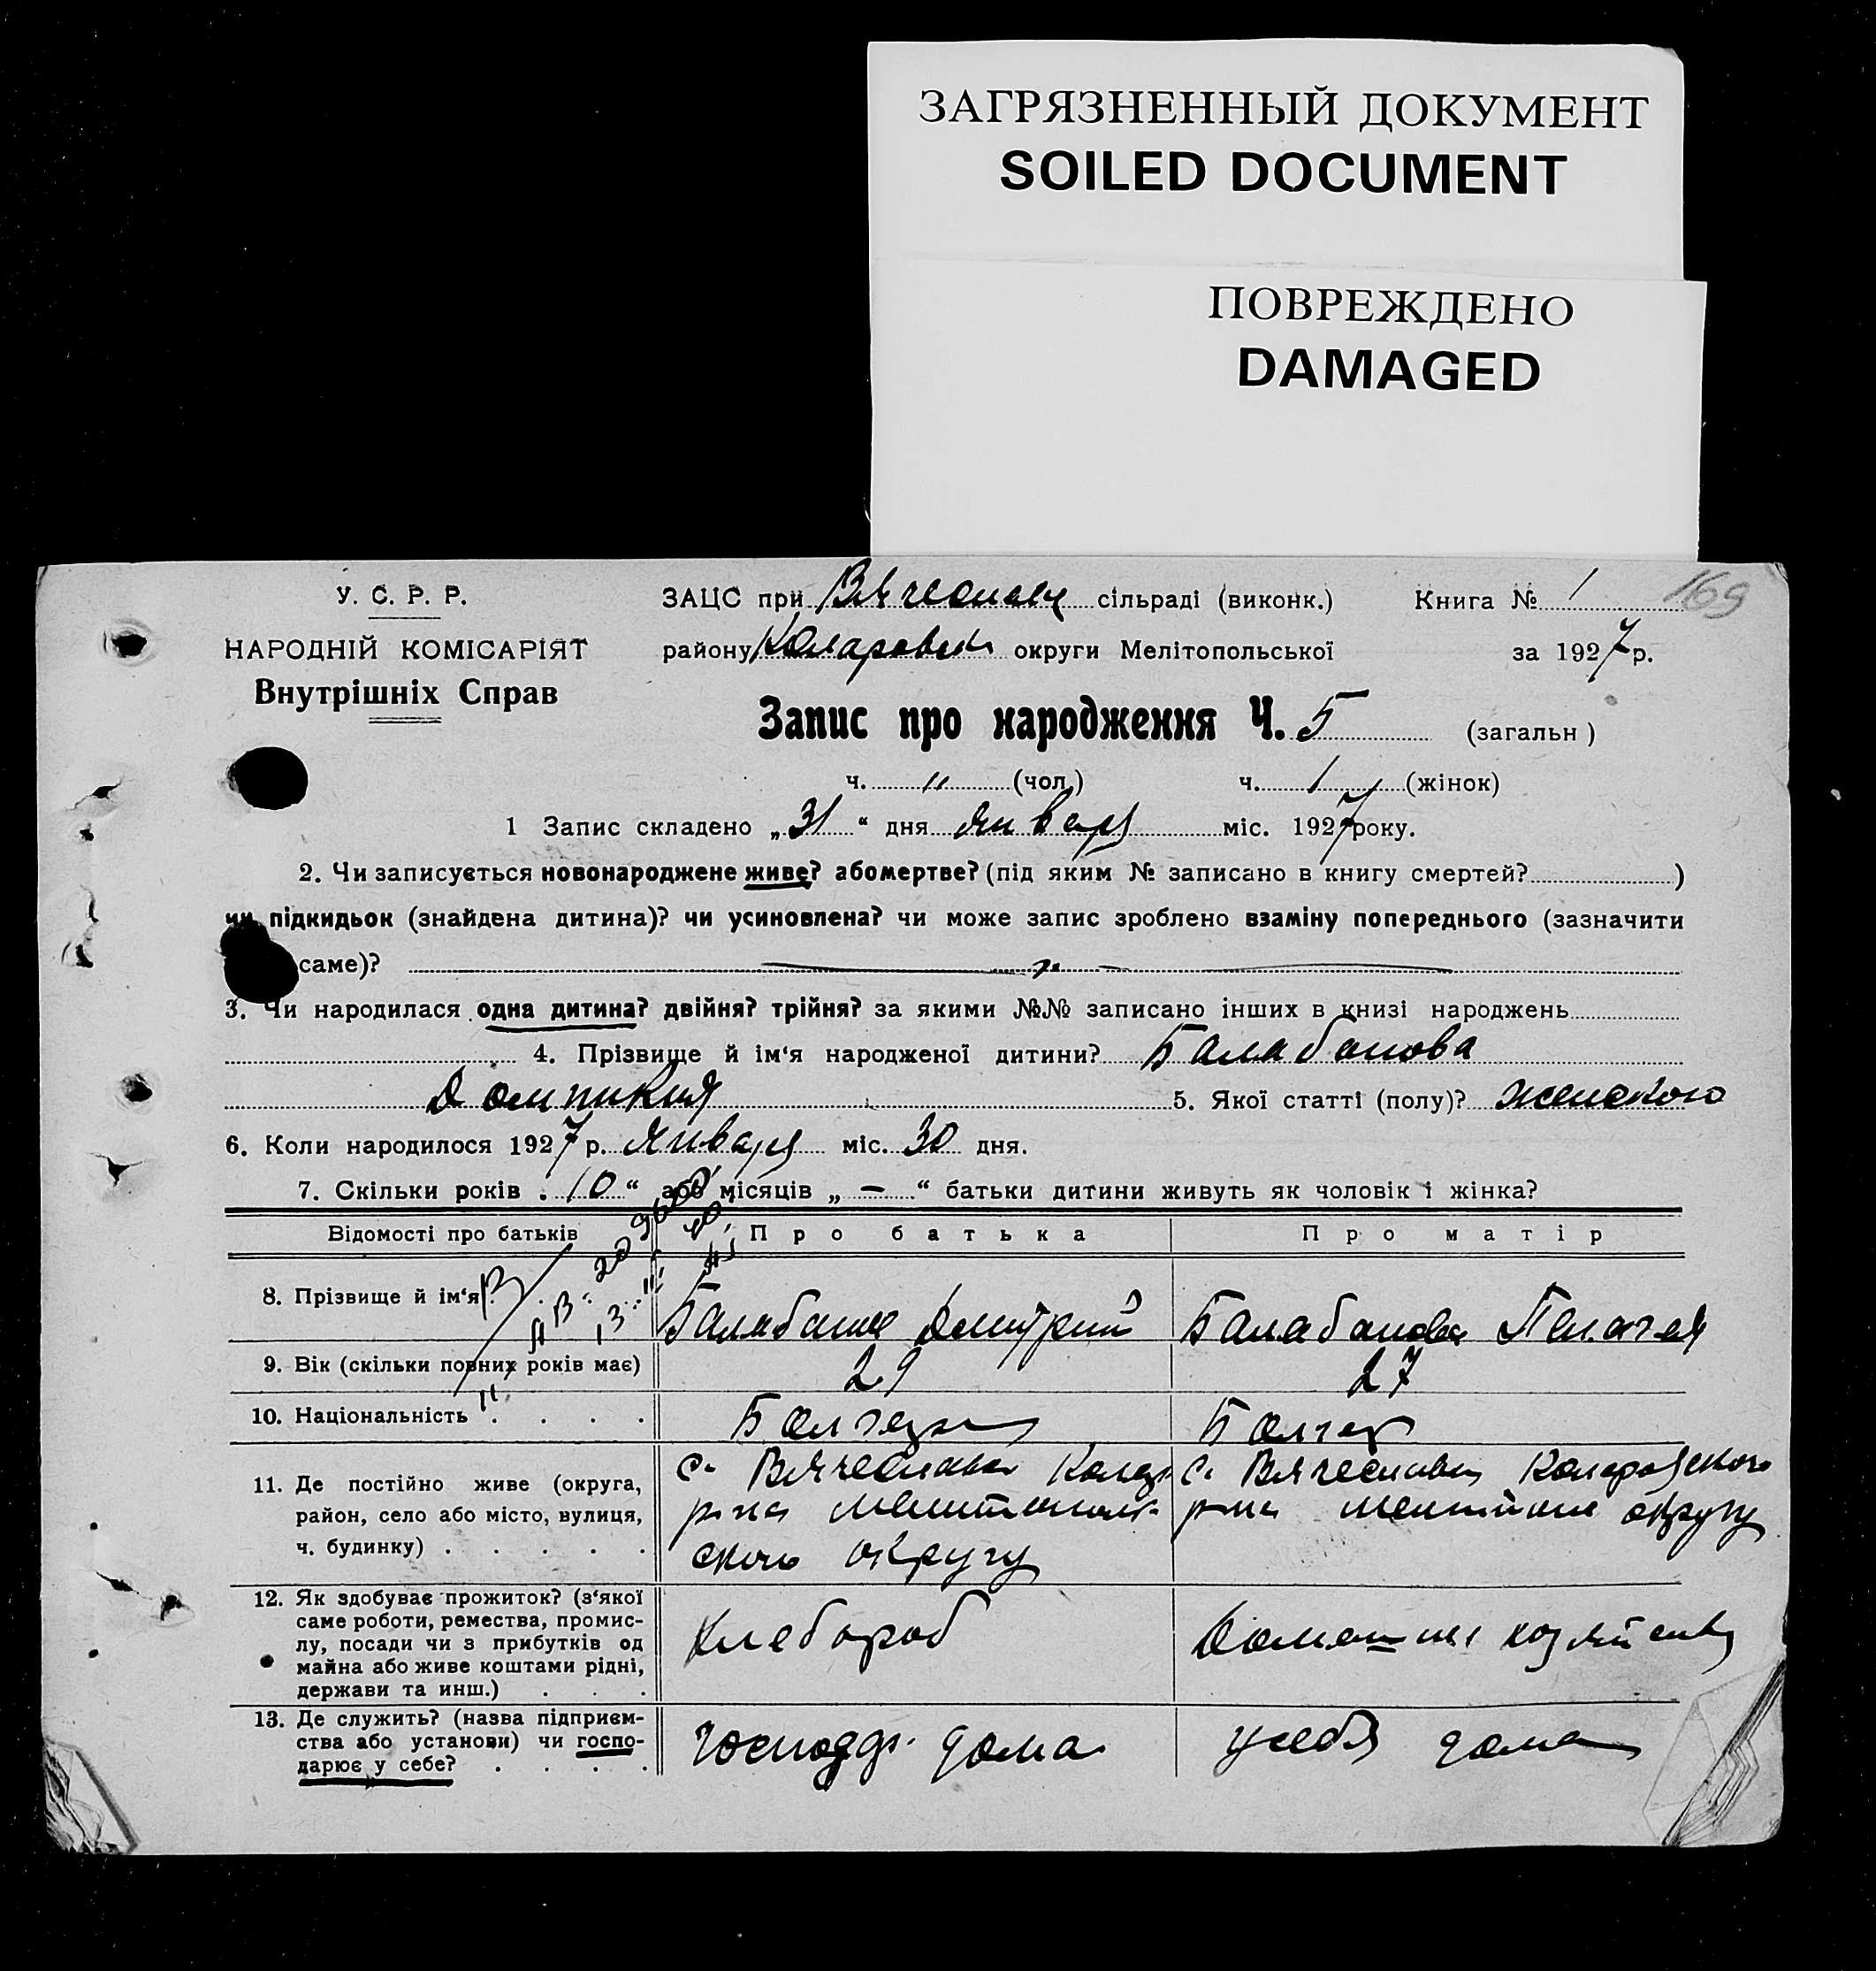 ЗАГРЯЗНЕННЫЙ ДОКУМЕНТ
SOILED DOCUMENT
ПОВРЕЖДЕНО
DAMAGED
У. С. Р. Р.
НАРОДНІЙ КОМІСАРІЯТ
Внутрішніх Справ
169
ЗАЦС при сільраді (виконк.) Книга № 1
району округи Мелітопольської за 1927 р.
Запис про народження Ч. 5 (загальн )
ч. " (чол.) ч. 1 (жінок)
1 Запис складено „ 31 “ дня января міс. 1927 року.
2. Чи записується новонароджене живе? або мертве? (під яким № записано в книгу смертей? )
чи підкидьок (знайдена дитина)? чи усиновлена? чи може запис зроблено взаміну попереднього (зазначити
саме)?
3. Чи народилася одна дитина? двійня? трійня? за якими №№ записано інших в книзі народжень
4. Прізвище й ім‘я народженої дитини? Балабанова
Домникия 5. Якої статті (полу)? женского
6. Коли народилося 1927 р. Января міс. 30 дня.
7. Скільки років „ 10 “ або місяців „ — “ батьки дитини живуть як чоловік і жінка?
Відомості про батьків Про батька Про матір
8. Прізвище й ім‘я Балабанов Дмитрий Балабанова Пелагея
9. Вік (скільки повних років має) 29 27
10. Національність . . . . Болгар
11. Де постійно живе (округа,
район, село або місто, вулиця,
ч. будинку) . . . . .
с. Вячеславка
р-на
ского округу
с.
р-на округу
12. Як здобуває прожиток? (з‘якої
саме роботи, ремества, промис-
лу, посади чи з прибутків од
майна або живе коштами рідні,
держави та инш.) . . .
Хлебороб
13. Де служить? (назва підприєм-
ства або установи) чи госпо-
дарює у себе? . . . .
дома
у себя дома